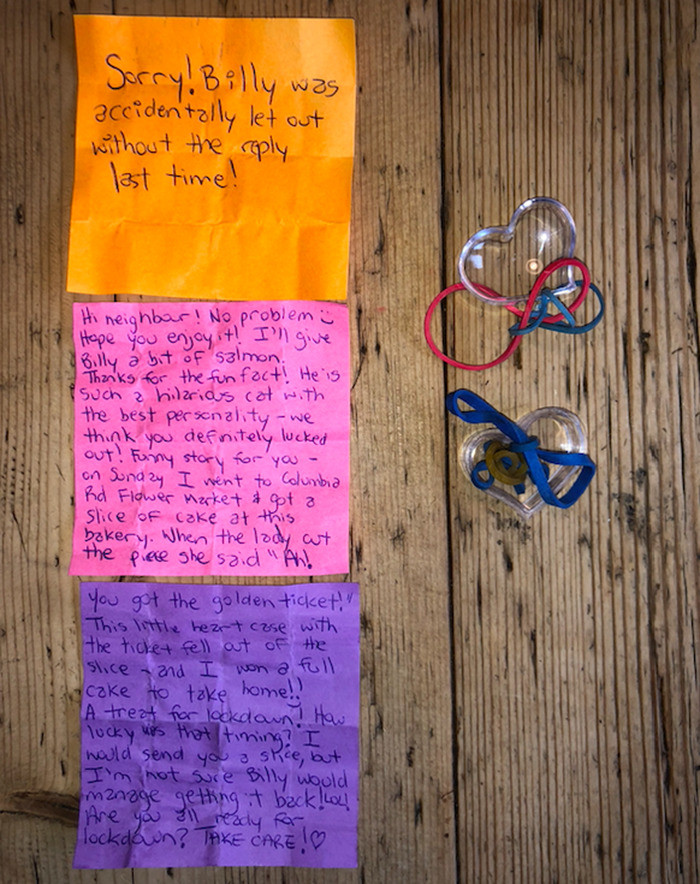 Sorry! Billy was
accidentally let out
without the reply
last time!
Hi neighbour! No problem :)
Hope you enjoy it! I'll give
Billy a bit of salmon.
Thanks for the fun fact! He is
such a hilarious cat with
the best personality - we
think you definitely lucked
out! Funny story for you -
on Sunday I went to Columbia
Rd Flower Market & got a
slice of cake at this
bakery. When the lady cut
the piece she said "Ah!
You got the golden ticket!"
This little heart case with
the ticket fell out of the
slice - and I won a full
cake to take home!!
A treat for lockdown! How
lucky was that timing? I
would send you a slice, but
I'm not sure Billy would
manage getting it back! Lol!
Are you all ready for
lockdown? TAKE CARE! ♡